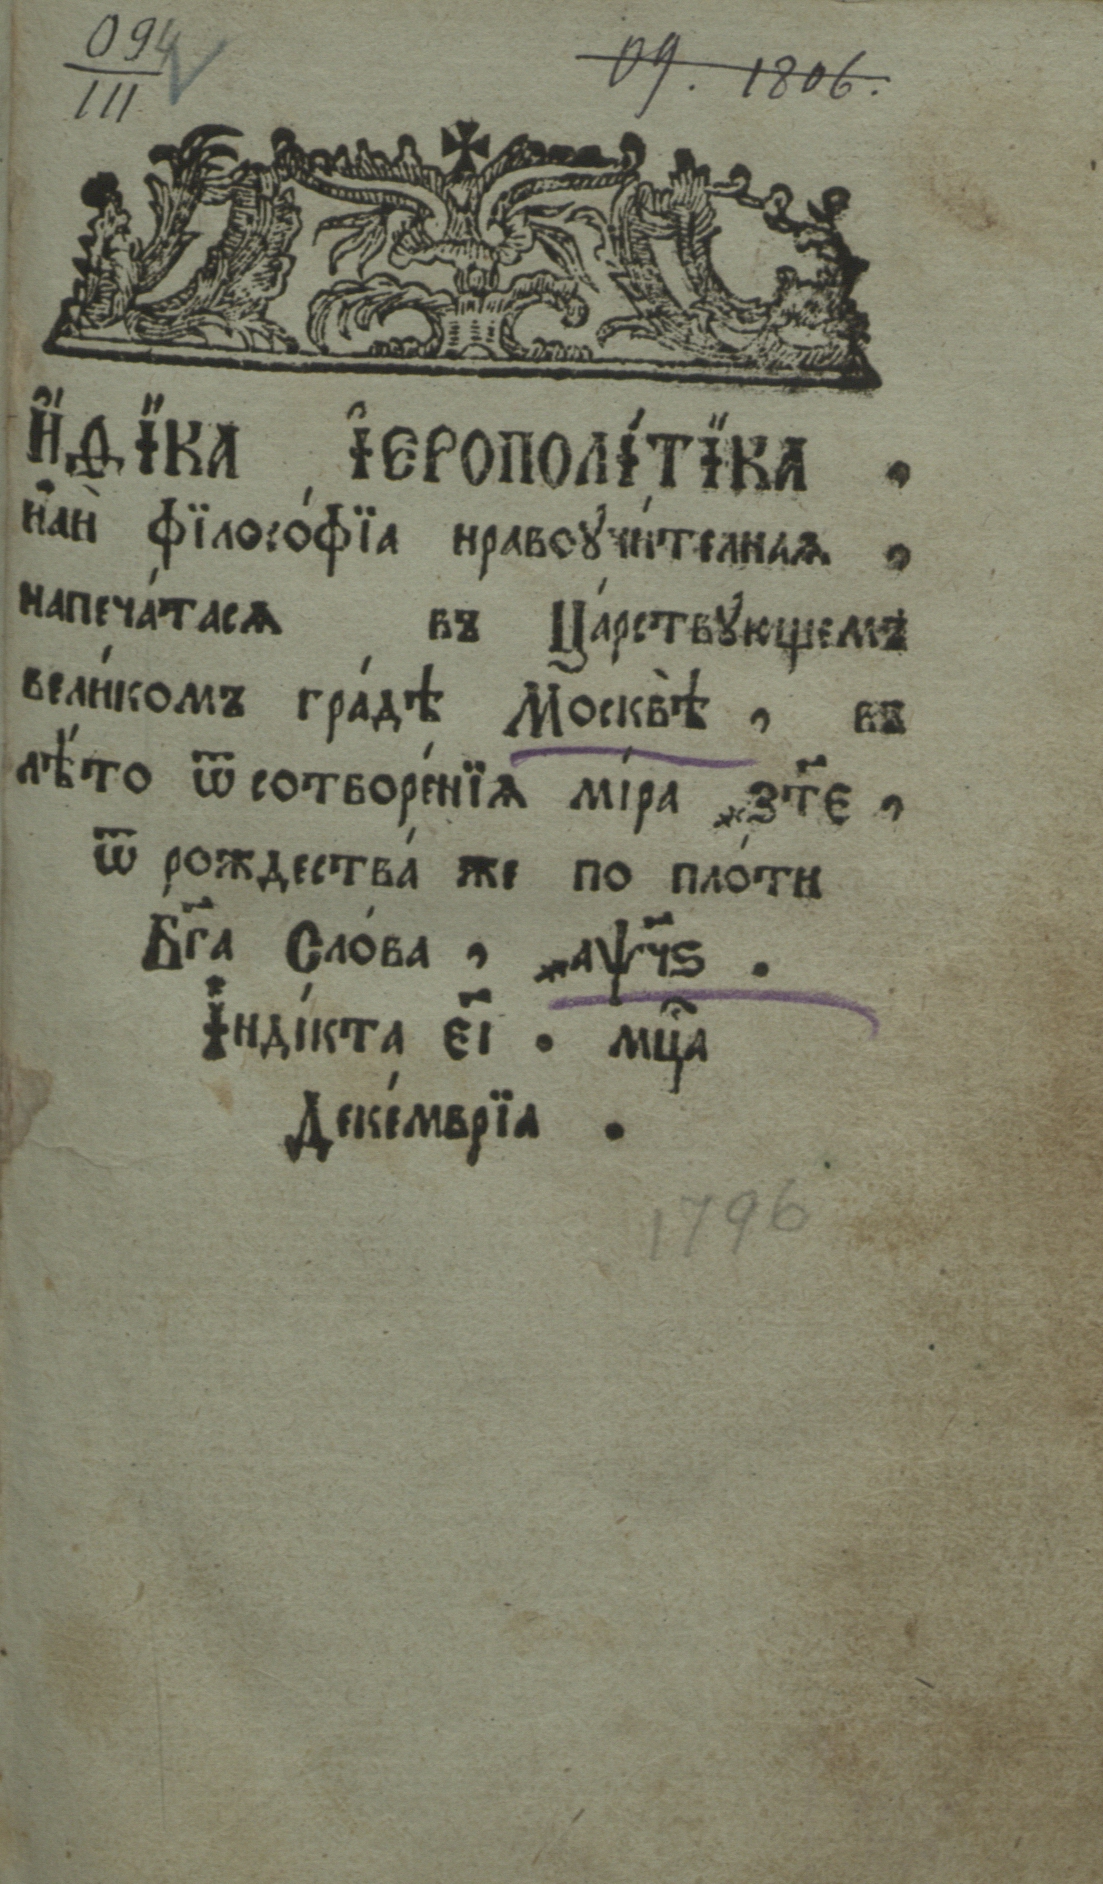 094
III
09. 1806.
И҆́ѳїка і҆ерополі́тїка .
и҆лѝ фїлосо́фїа нравоꙋчи́телнаѧ ,
напеча́тасѧ въ Ца́рствꙋющемъ
вели́комъ гра́дѣ Москвѣ̀ , въ
лѣ́то ѿ сотворе́нїѧ мі́ра ҂зт҃є ,
ѿ рождества́ же по пло́ти
Бг҃а Сло́ва , ҂аѱч҃ѕ .
І҆нді́кта є҃і . мц҃а
Деке́мврїа .
1796